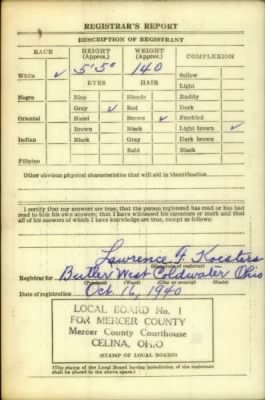 REGISTRAR'S REPORT
DESCRIPTION OF REGISTRANT
RACE HEIGHT (Approx.) WEIGHT (Approx.) COMPLEXION
5' 5" 140 Sallow
White ✓ EYES HAIR Light
Negro Blue Blonde Ruddy
Gray ✓ Red Dark
Oriental Hazel Brown ✓ Freckled
Brown Black Light brown ✓
Indian Black Gray Dark brown
Bald Black
Filipino
Other obvious physical characteristics that will aid in identification
I certify that my answers are true; that the person registered has read or has had
read to him his own answers; that I have witnessed his signature or mark and that
all of his answers of which I have knowledge are true, except as follows:
Lawrence F. Koesters
Registrar for Butler West Coldwater Ohio
(Precinct) (Ward) (City or county) (State)
Date of registration Oct 16, 1940
LOCAL BOARD No. 1
FOR MERCER COUNTY
Mercer County Courthouse
CELINA, OHIO
(STAMP OF LOCAL BOARD)
(The stamp of the Local Board having jurisdiction of the registrant
shall be placed in the above space.)